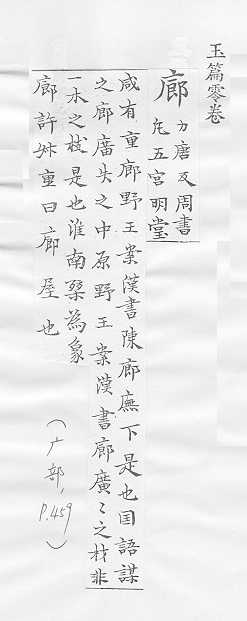 玉篇零卷
廊 力唐反周書
凢五宮明堂
咸有重廊野王案漢書陳廊廡下是也囯語謀
之廊廣失之中原野王案漢書廊廣〻之材非
一木之枝是也淮南桀為象
廊許叔重曰廊屋也
(广部, P.459)